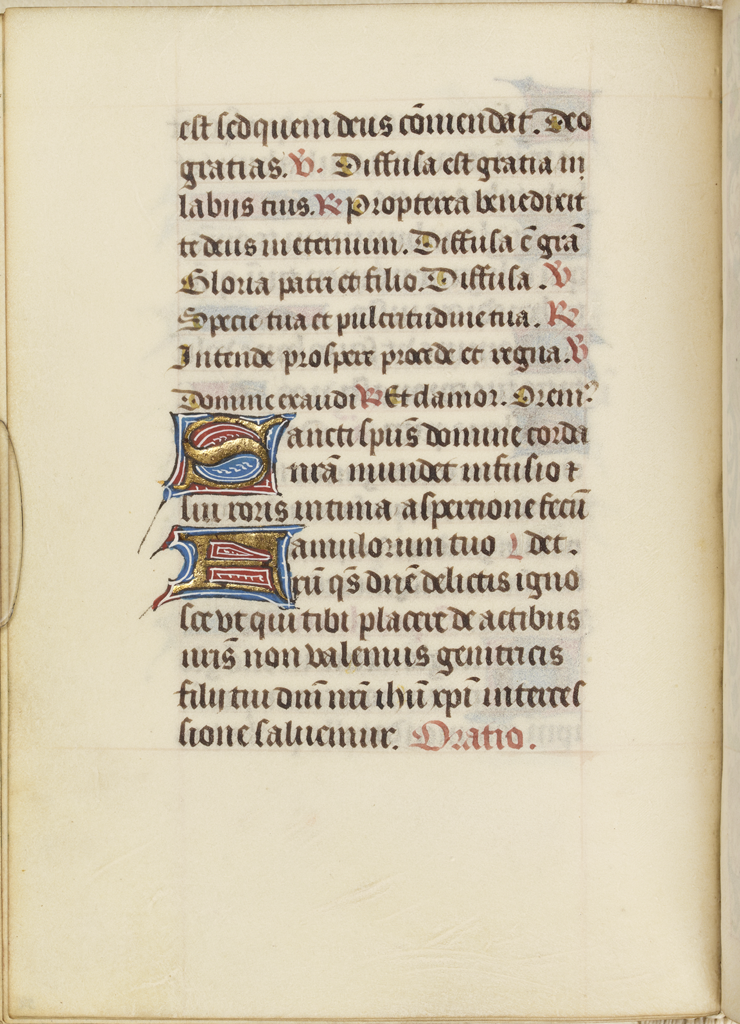 est sed quem deus cōmendat. Deo
gratias. V. Diffusa est gratia in
labijs tuis. R Propterea benedixit
te deus in eternum. Diffusa ē grā
Gloria patri et filio. Diffusa. V
Specie tua et pulcritudine tua. R
Intende prospere procede et regna. V
Domine exaudi R Et clamor. Orem⁹
Sancti spūs domine corda
nrā mundet infusio ⁊
sui roris intima aspertione fecū
Famulorum tuo det.
rū qs̄ dnē delictis igno
sce vt qui tibi placere de actibus
nris̄ non valemus genitricis
filij tui dnī nrī ihū xpī interces
sione saluemur. Oratio.